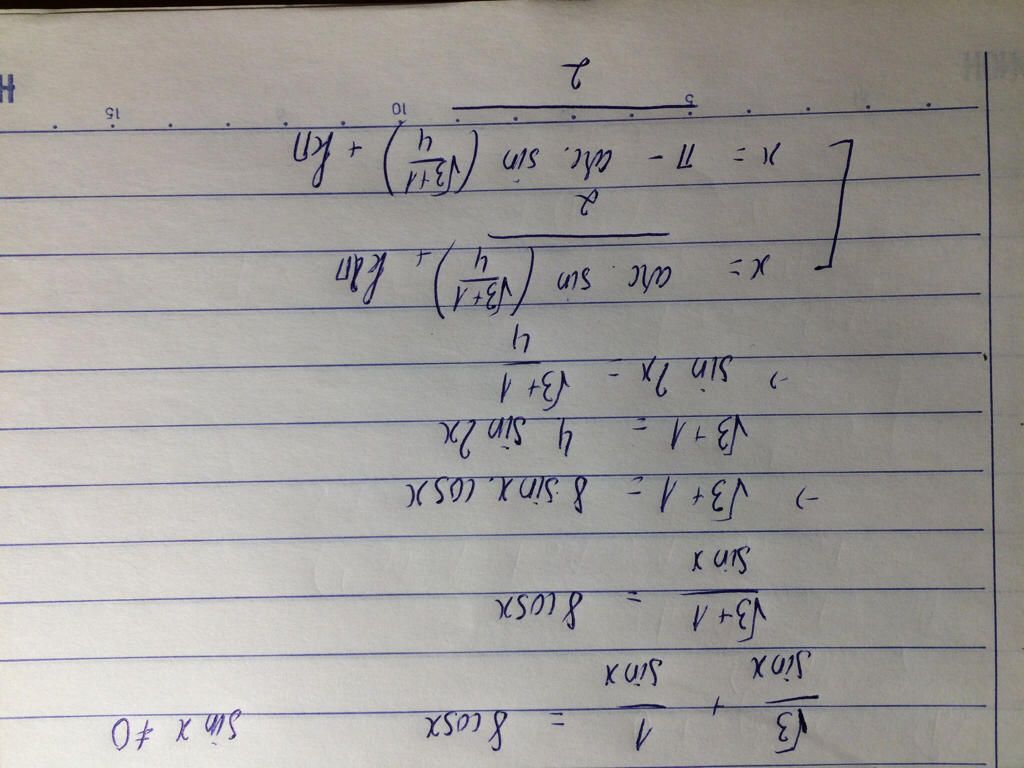 √3/sin x + 1/sin x = 8 cosx    sin x ≠ 0
(√3+1)/sin x = 8 cosx
→ √3+1 = 8 sinx. cosx
√3+1 = 4 sin 2x
→ sin 2x = (√3+1)/4
[ x = (arc sin ((√3+1)/4))/2 + kπ
[ x = (π - arc. sin ((√3+1)/4))/2 + kπ
5 10 15
H